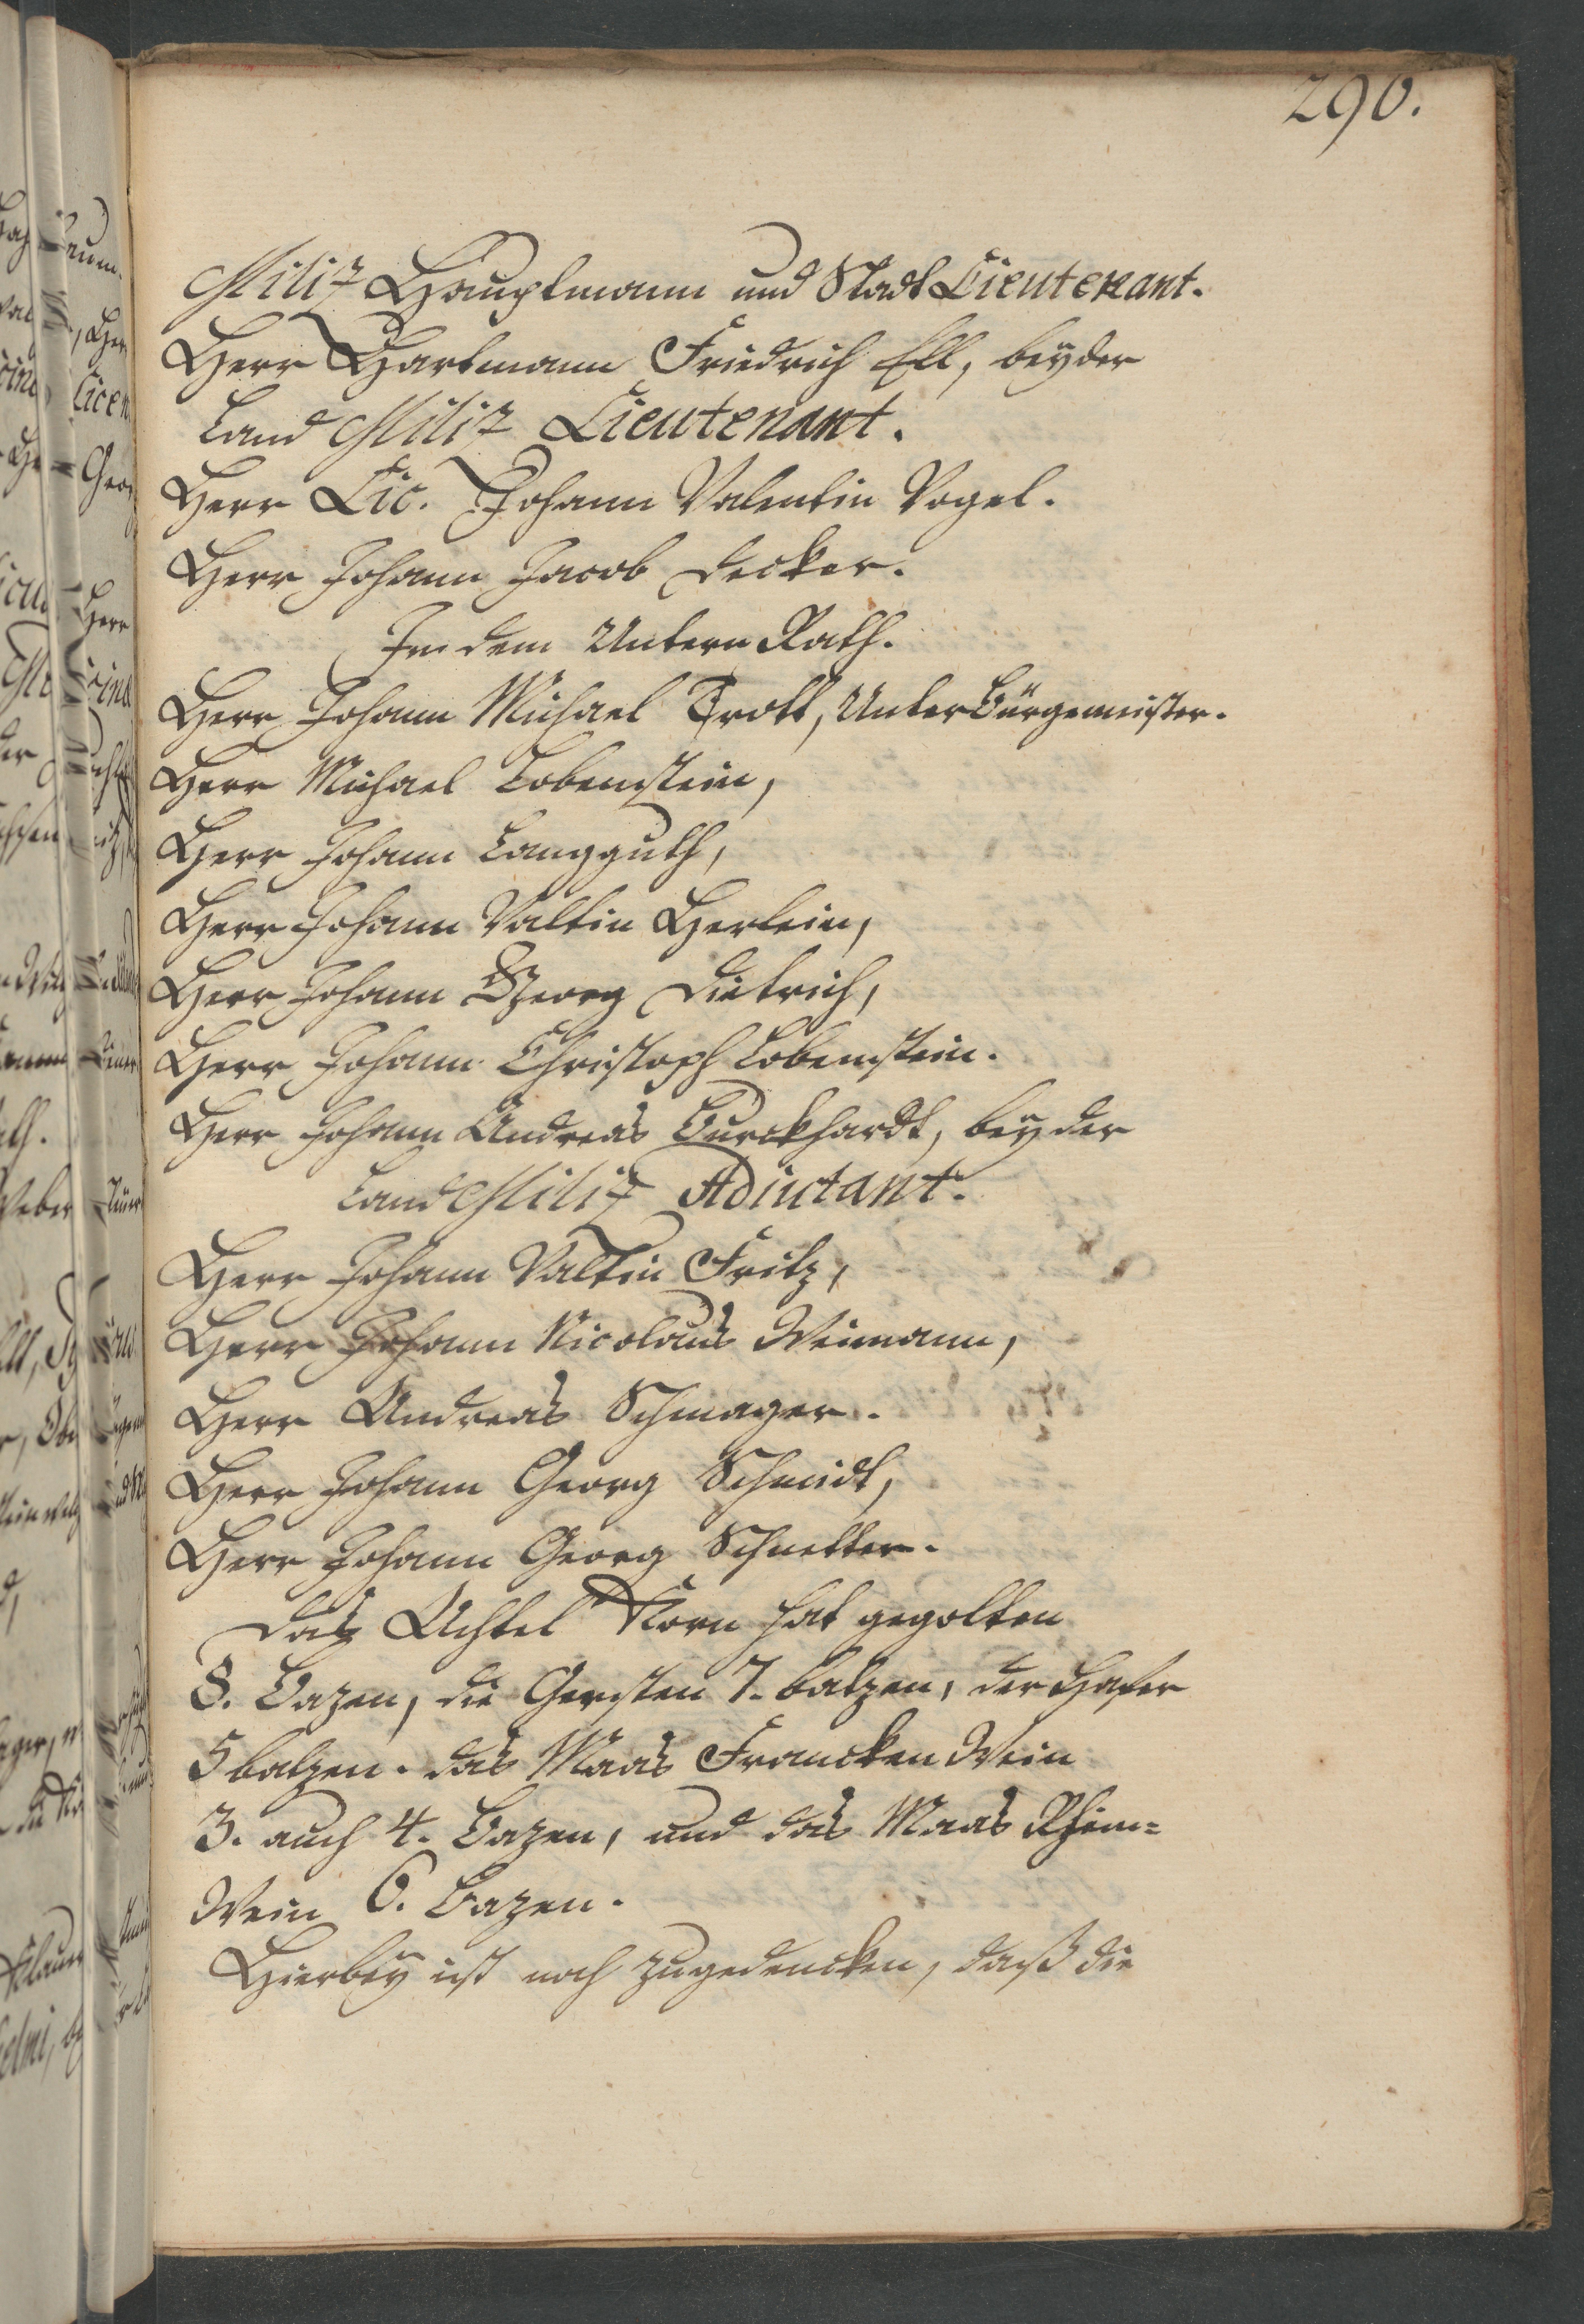 290.
Militz Hauptmann und Stadt Lieutenant.
Herr Hartmann Friedrich Ell, beyder
Land Militz Lieutenant.
Herr Lic. Johann Valentin Vogel.
Herr Johann Jacob Decker.
In dem Untern Rath.
Herr Johann Michael Trott, Unter Bürgemeister.
Herr Michael Lobenstein,
Herr Johann Langguth,
Herr Johann Valtin Herlein,
Herr Johann Georg Dietrich,
Herr Johann Christoph Lobenstein.
Herr Johann Andreas Burckhardt, bey der
Land Militz Adiutant.
Herr Johann Valtin Fritz,
Herr Johann Nicolaus Weimann,
Herr Andreas Schmager.
Herr Johann Georg Schmidt,
Herr Johann Georg Schnetter.
Das Achtel Korn hat gegolten
8. Bazen, die Gersten 7. batzen, der Hafer
5 batzen. das Maas Francken Wein
3. auch 4. Bazen, und das Maas Rhein-
Wein 6. Bazen.
Hierbey ist noch zugedencken, daß die